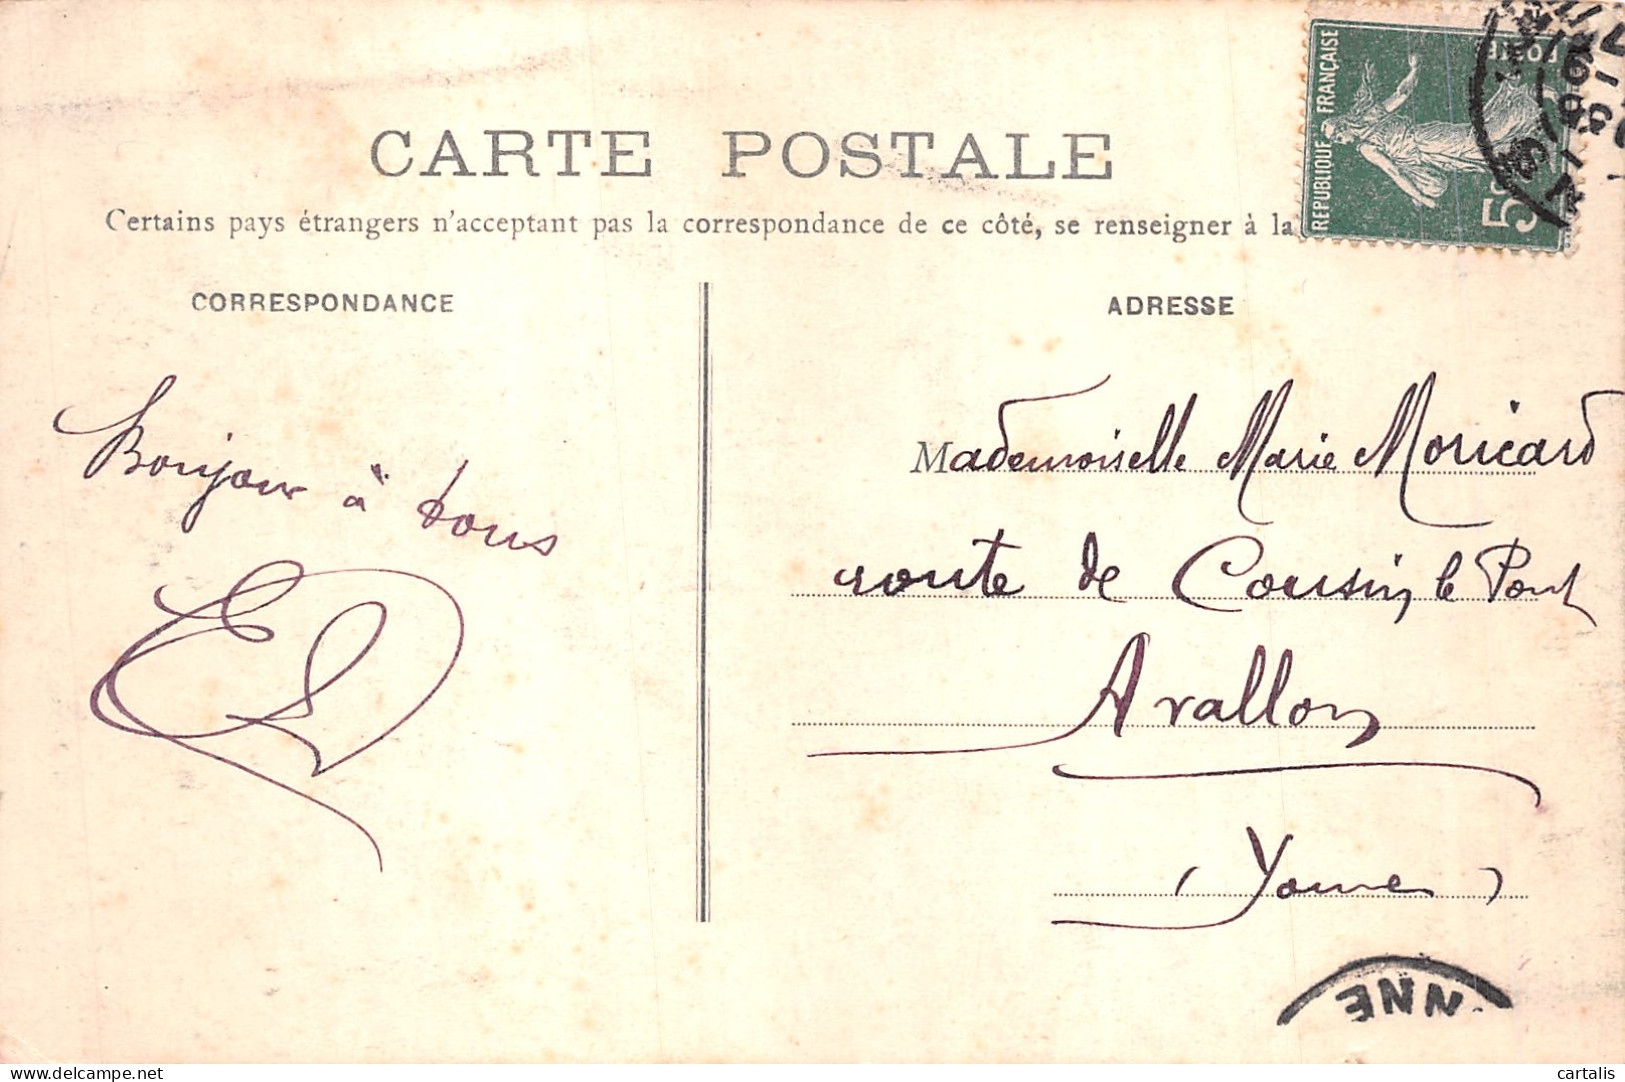 CARTE POSTALE
Certains pays étrangers n'acceptant pas la correspondance de ce côté, se renseigner à la
RÉPUBLIQUE FRANÇAISE
POSTE
5c
CORRESPONDANCE
ADRESSE
Bonjour à tous
Mademoiselle Marie Moricard
route de Cousin le Pont
Avallon
(Yonne)
NNE
Delcampe.net
cartalis